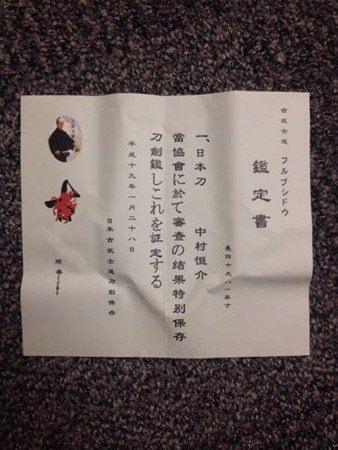 古武士道 フルブシドウ
鑑定書
長四十点八一英寸
一、日本刀 中村恒介
當協會に於て審査の結果特別保存
刀劍鑑しこれを証定する
平成十九年一月二十八日
日本古武士道刀剣保存
順番